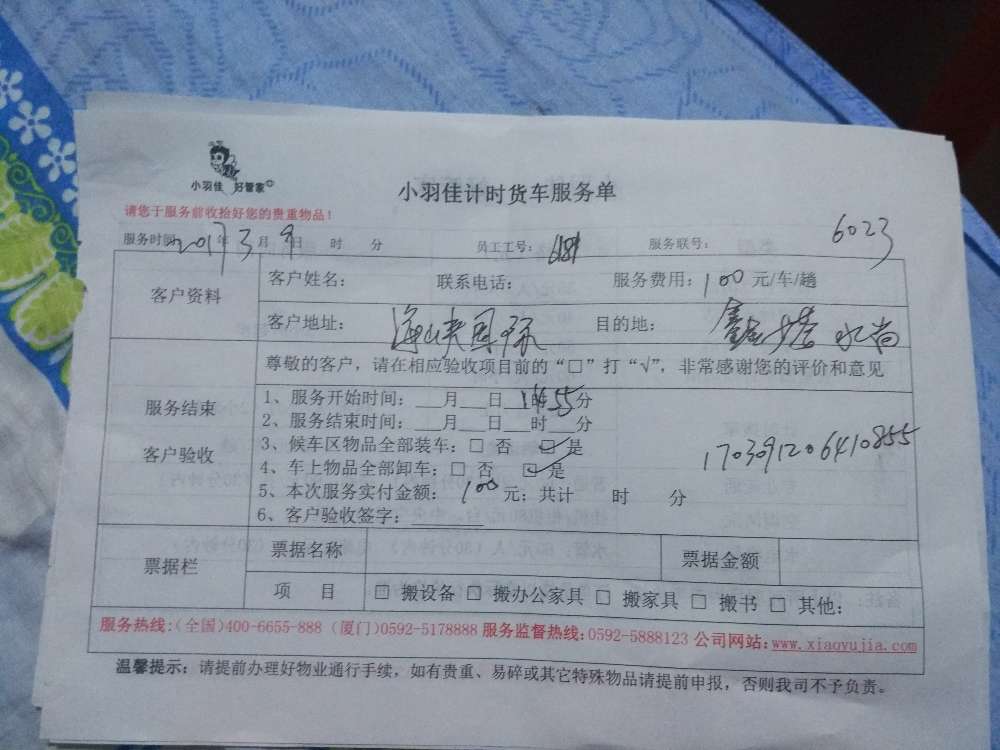 小羽佳 好管家
小羽佳计时货车服务单
请您于服务前收拾好您的贵重物品！
服务时间：2017年3月9日 时 分 员工工号： 服务联号：6023
客户资料
客户姓名： 联系电话： 服务费用：100元/车/趟
客户地址：海峡国际 目的地：
尊敬的客户，请在相应验收项目前的“□”打“√”，非常感谢您的评价和意见
服务结束
客户验收
1、服务开始时间：___月___日___时55分
2、服务结束时间：___月___日___时___分
3、候车区物品全部装车：□ 否 ☑ 是
4、车上物品全部卸车：□ 否 ☑ 是
1703091206410855
5、本次服务实付金额：100元；共计 时 分
6、客户验收签字：______
票据栏
票据名称 票据金额
项 目 □ 搬设备 □ 搬办公家具 □ 搬家具 □ 搬书 □ 其他：
服务热线：（全国）400-6655-888（厦门）0592-5178888 服务监督热线：0592-5888123 公司网站：www.xiaoyujia.com
温馨提示：请提前办理好物业通行手续，如有贵重、易碎或其它特殊物品请提前申报，否则我司不予负责。